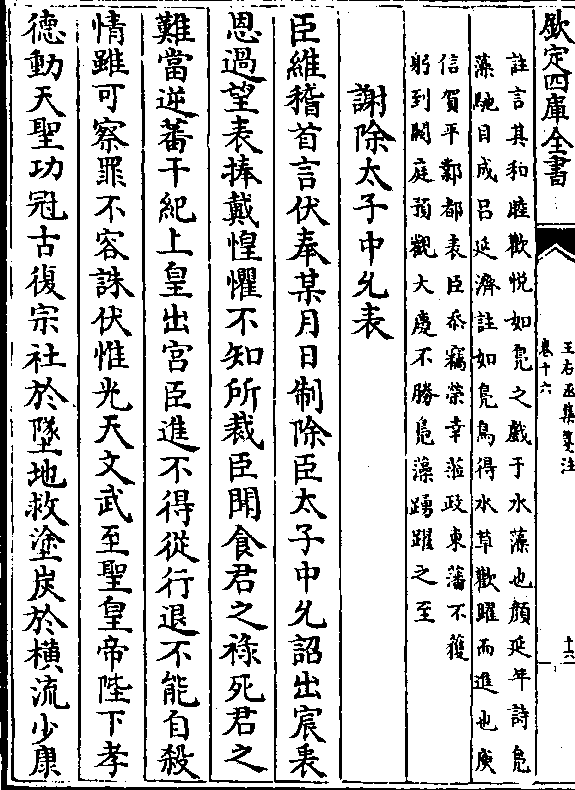 欽定四庫全書
王右丞集箋注
卷十六
十六
註言其和睦歡悦如鳬之戲于水藻也顔延年詩鳬
藻馳目成吕延濟註如鳬鳥得水草歡躍而進也庾
信賀平鄴都表臣忝竊榮幸蒞政東藩不獲
躬到闕庭預觀大慶不勝鳬藻踴躍之至
謝除太子中允表
臣維稽首言伏奉某月日制除臣太子中允詔出宸衷
恩過望表捧戴惶懼不知所裁臣聞食君之祿死君之
難當逆蕃干紀上皇出宫臣進不得從行退不能自殺
情雖可察罪不容誅伏惟光天文武至聖皇帝陛下孝
德動天聖功冠古復宗社於墜地救塗炭於横流少康